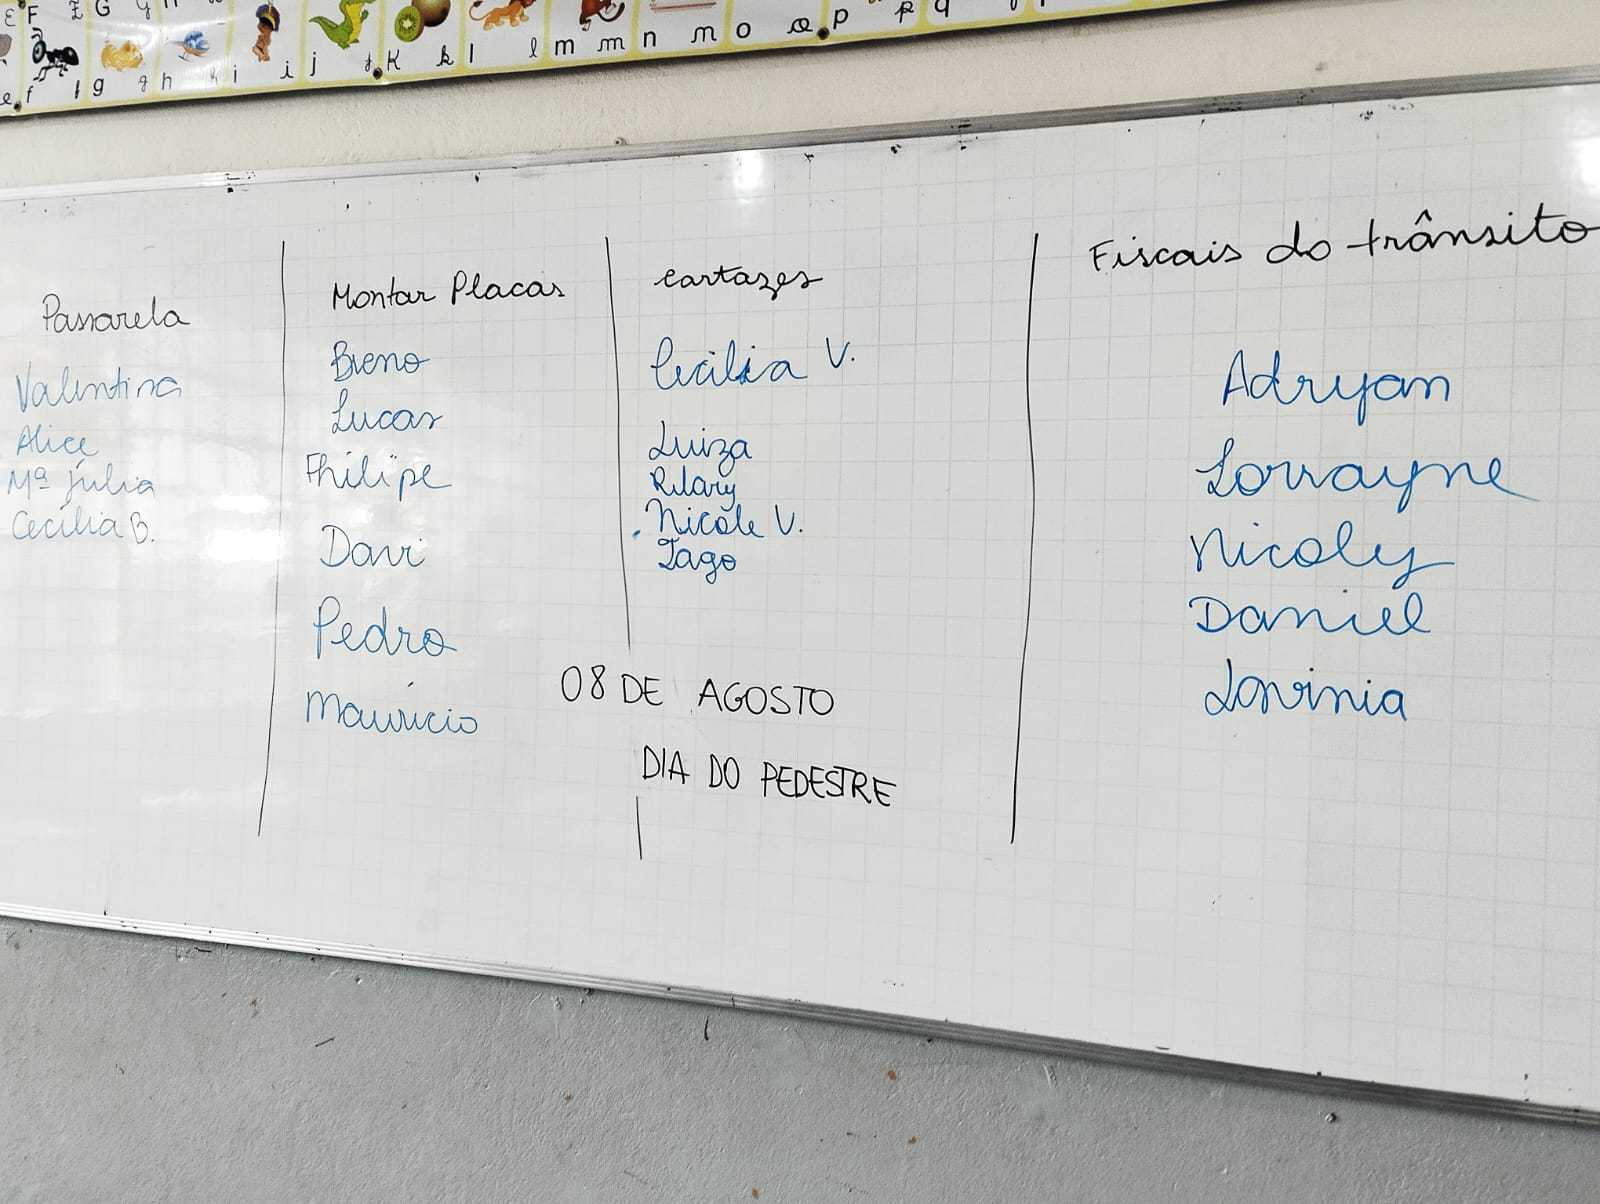 F f G g h i j K k l m m n m o o p p q
e f f g g h h i i j j K k l l m m n m o o p
Passarela
Valentina
Alice
Mª Júlia
Cecília B.
Montar Placas
Breno
Lucas
Fhilipe
Davi
Pedro
Mauricio
cartazes
Cecilia V.
Luiza
Rilary
Nicole V.
Iago
08 DE AGOSTO
DIA DO PEDESTRE
Fiscais do trânsito
Adryan
Lorrayne
Nicoly
Daniel
Lavinia